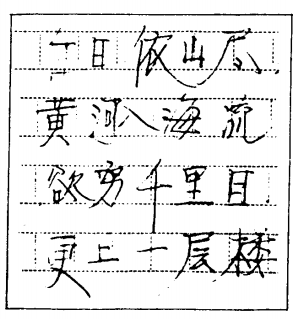 日依山尽
黄河入海流
欲穷千里目
更上一层楼